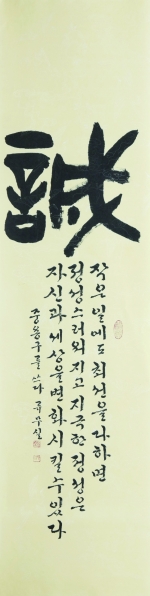 誠
작은 일에도 최선을 다하면
정성스러워지고 지극한 정성은
자신과 세상을 변화시킬 수 있다
중용구를 쓰다